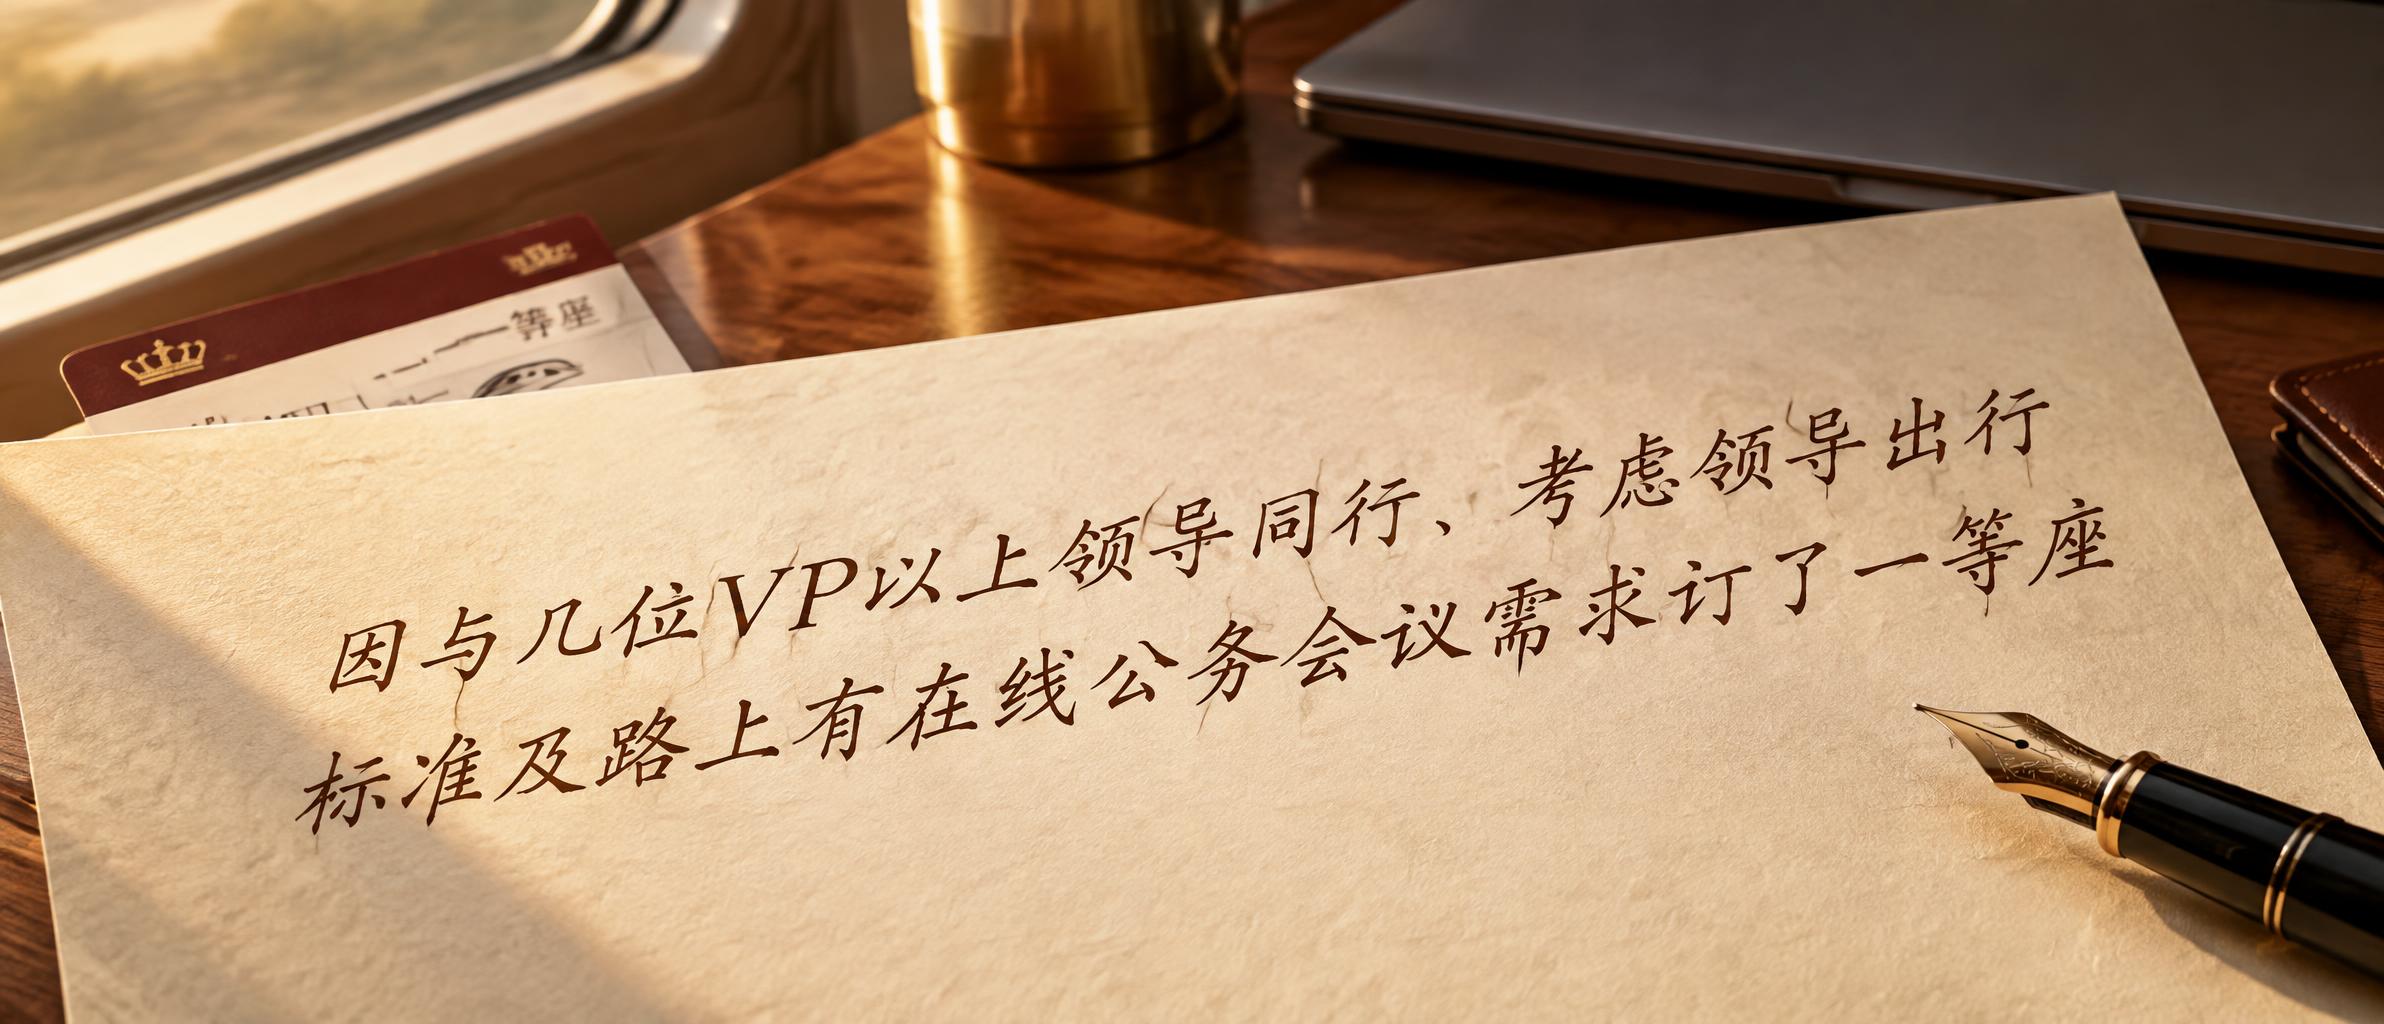 一等座
因与几位VP以上领导同行、考虑领导出行
标准及路上有在线公务会议需求订了一等座